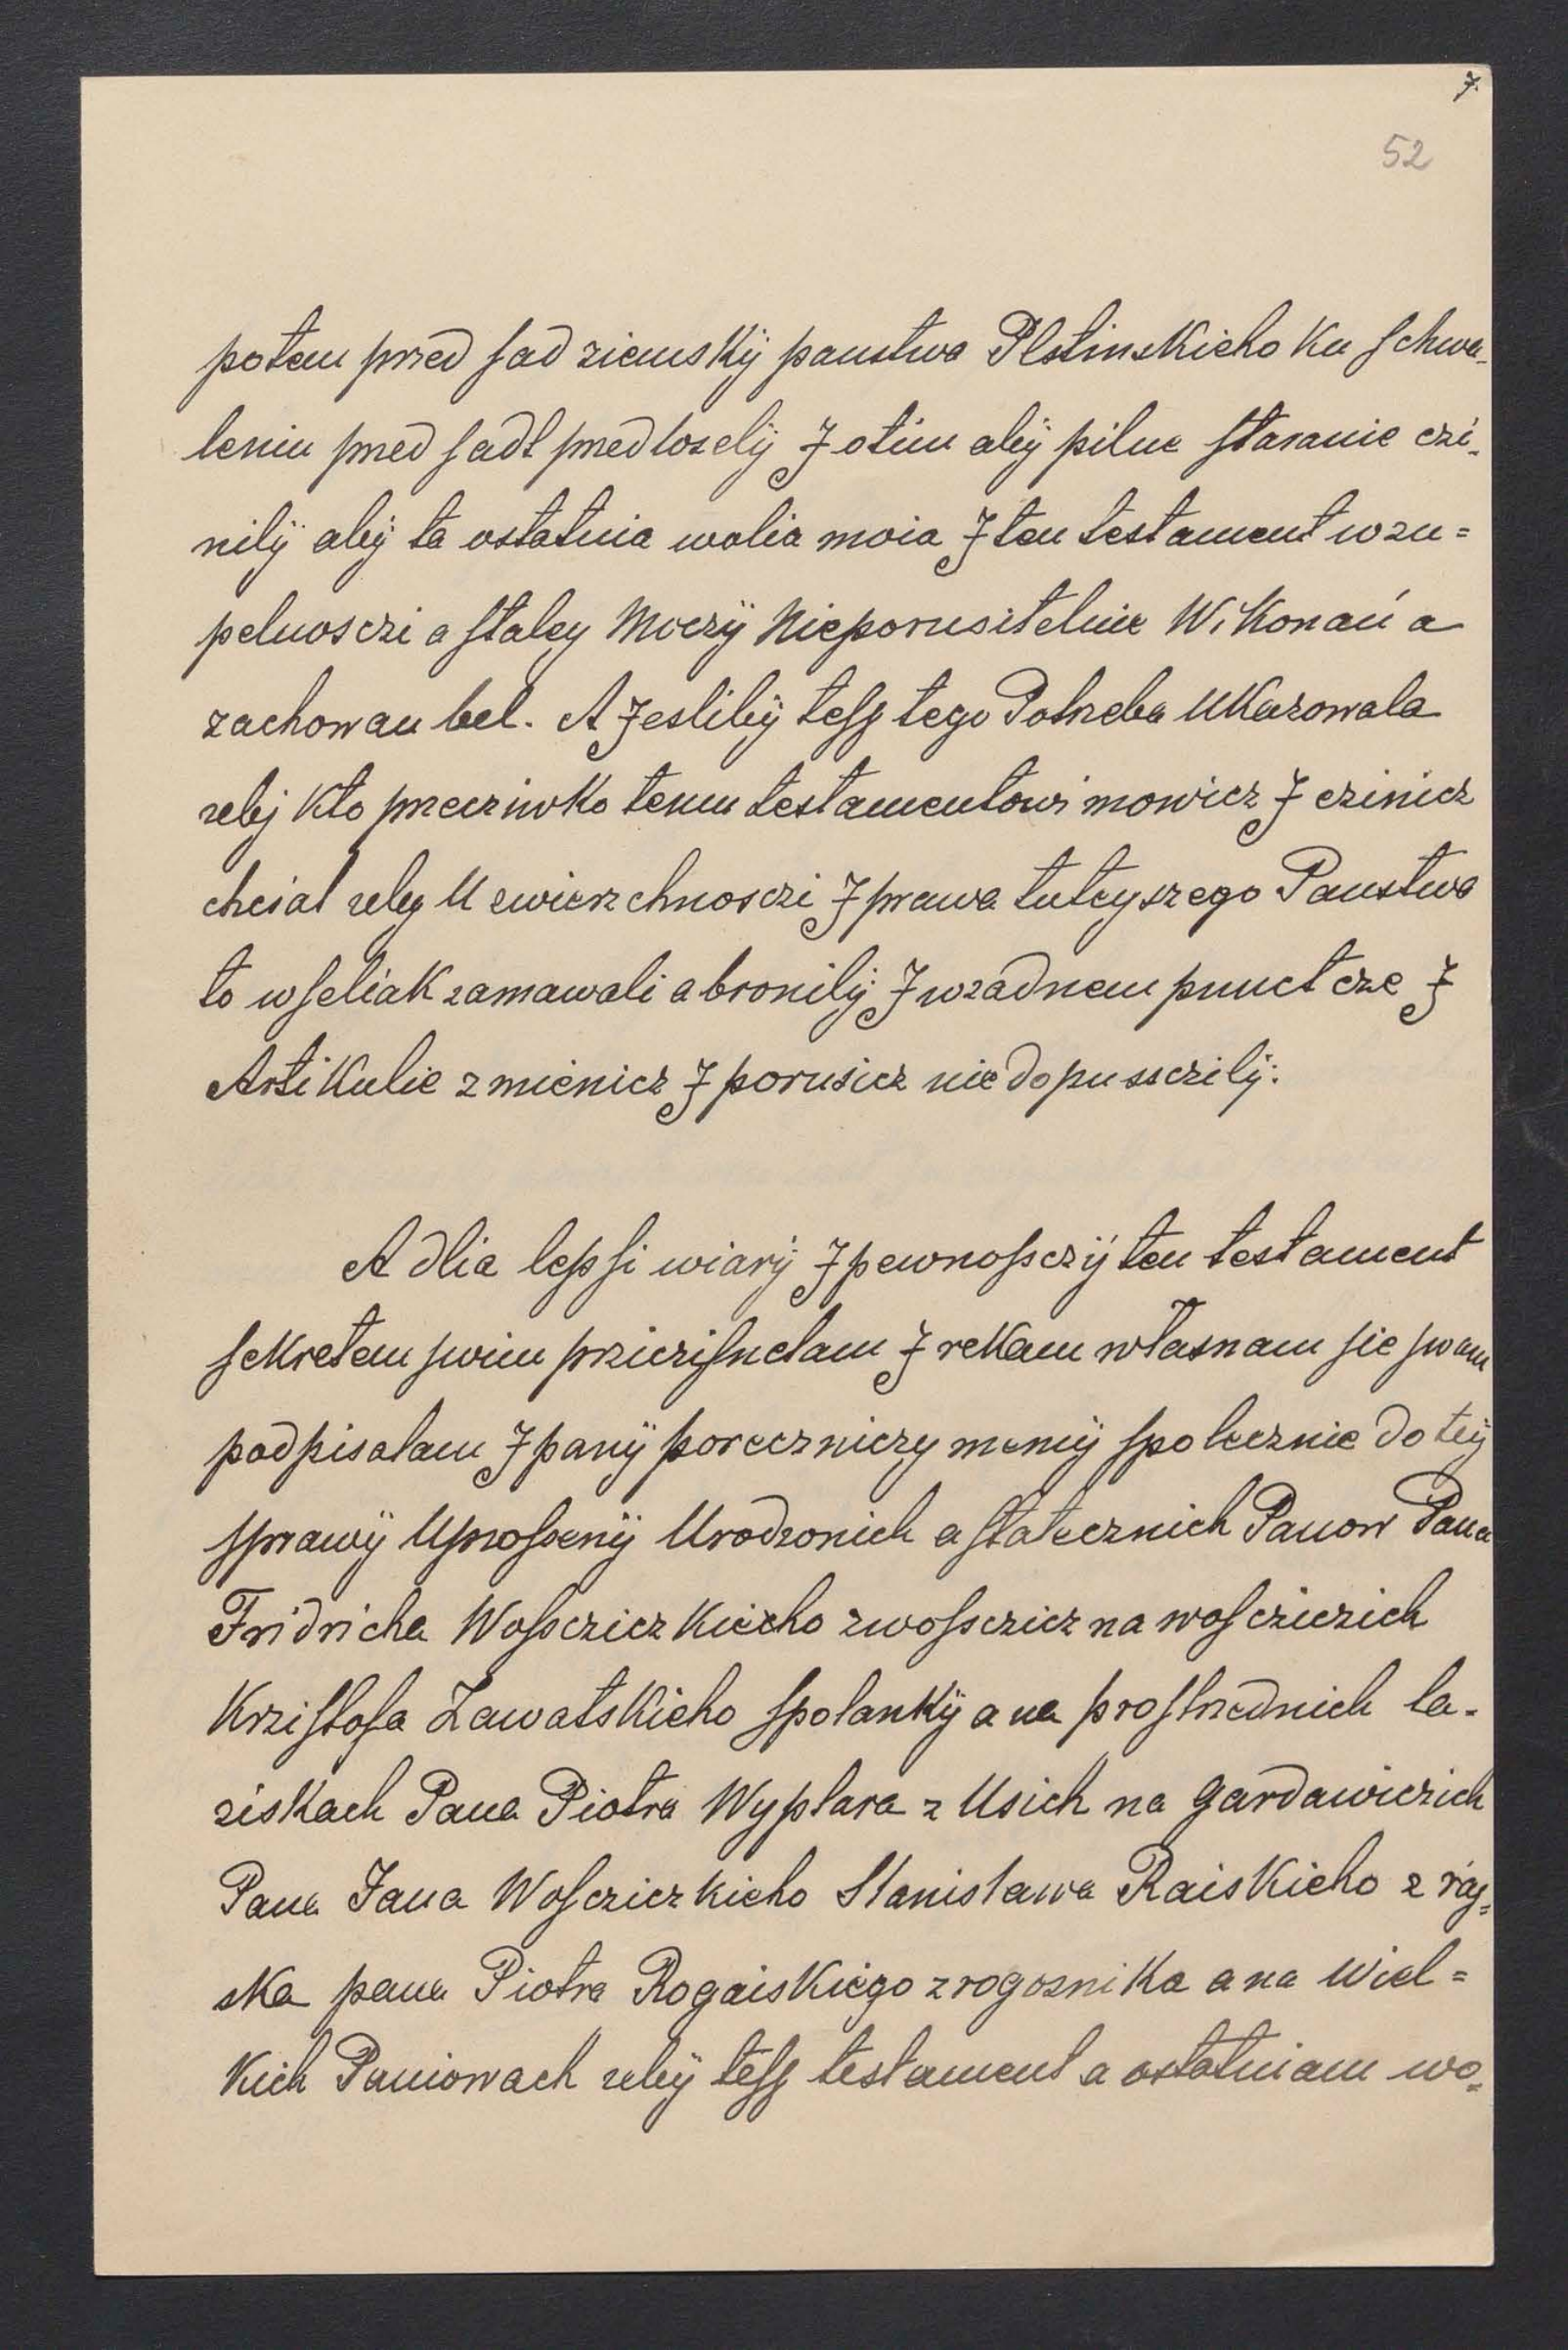 7.
52
potem pred ſad ziemskÿ panstwa Plstinskieho Ku ſchwa-
leniu pred ſadt predlozelÿ J otim abÿ pilne ſtaranie czi-
nilÿ abÿ ta ostatnia wolia moia J ten testament wzu=
pelnosczi a ſtaley Moczÿ Nieporusitelnie WiKonań a
zachowan bel. A Jeslibÿ teſz tego Potrzeba UKazowala
zebÿ Kto przecziwKo temu testamentowi mowicz J czinicz
chcial zeby U zwierzchnosczi J prawa tuteyszego Panstwa
to wſeliaK zamawali a bronilÿ J wzadnem punctcze J
ArtiKulie zmienicz J porusicz nie dopussczilÿ.
A dlia lepſi wiarÿ J pewnoſsczÿ ten testament
ſeKretem ſwim przicziſnelam J reKam własnam ſie ſwam
podpisalam J panÿ poreczniczy memÿ ſpolecznie do teÿ
ſprawÿ Uproſzenÿ Urodzonich a ſtatecznich Panow Pana
Fridricha WoſscziczKieho zwoſsczicz na woſcziczich
Krziſtofa ZawatsKieho ſpolanKÿ a na proſtrzednich la-
ziskach Pana Piotra Wyplara z Usich na Gardawiczich
Pana Jana Woſcziczkieho Stanisława RaisKieho z raÿ=
sKa pana Piotra RogoisKiego z rogozniKa a na Wiel=
Kich Paniowach zebÿ teſz testament a ostatniam wo=